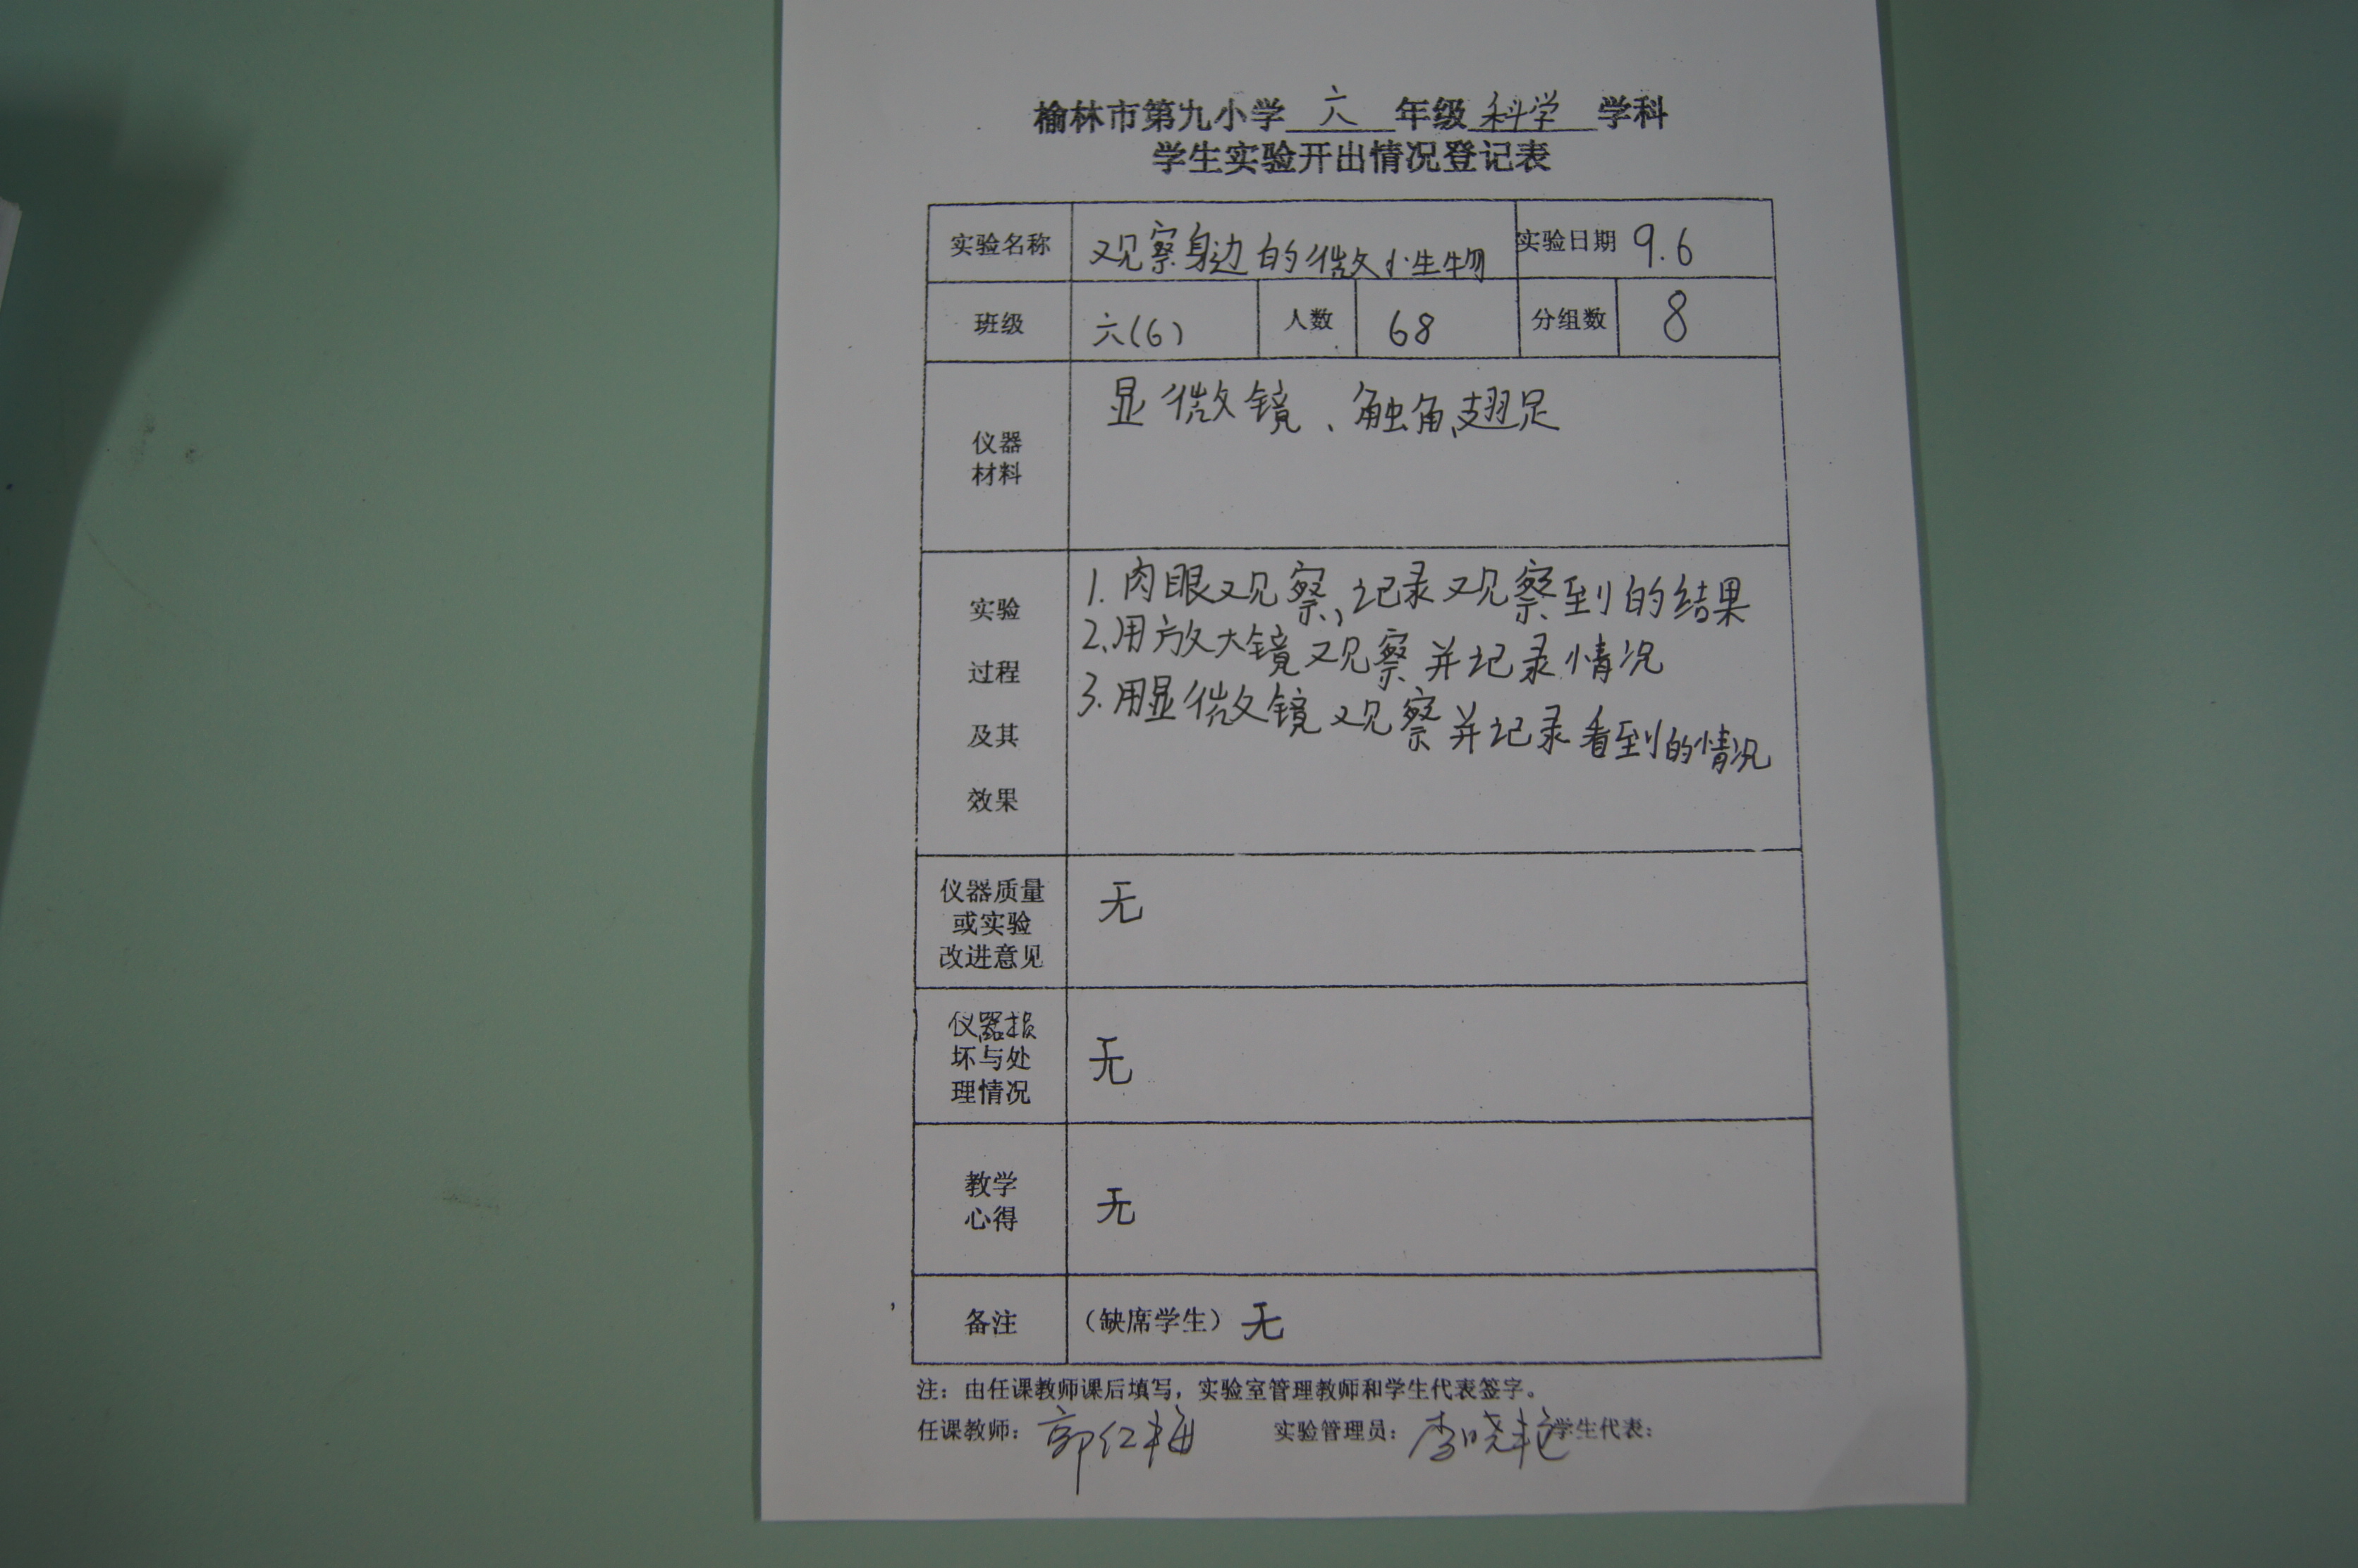 榆林市第九小学 六 年级 科学 学科
学生实验开出情况登记表
实验名称 观察身边的微小生物 实验日期 9.6
班级 六(6) 人数 68 分组数 8
仪器
材料
显微镜、触角、翅足
实验
过程
及其
效果
1.肉眼观察,记录观察到的结果
2.用放大镜观察并记录情况
3.用显微镜观察并记录看到的情况
仪器质量
或实验
改进意见
无
仪器损
坏与处
理情况
无
教学
心得
无
备注 (缺席学生) 无
注：由任课教师课后填写，实验室管理教师和学生代表签字。
任课教师： 郭红梅 实验管理员： 李晓艳 学生代表：